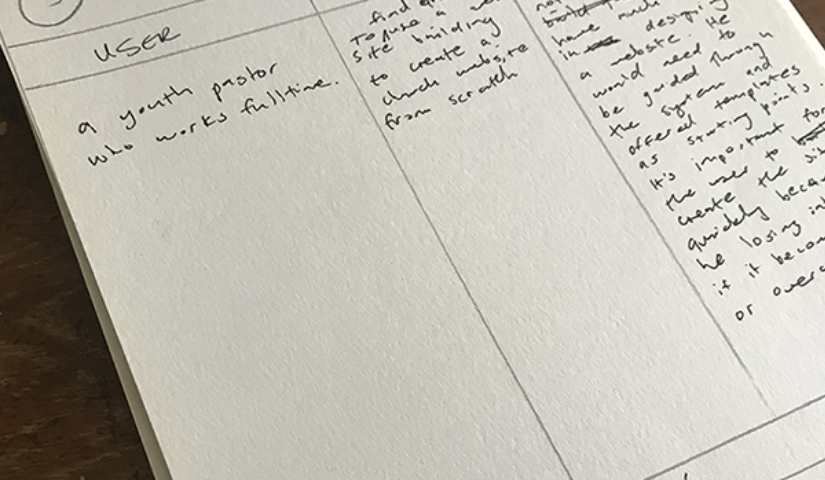 USER
a youth pastor
who works fulltime.
find
to use a
site building
to create a
church website
from scratch
have much
in designing
a website. He
would need to
be guided through
the system and
offered templates
as starting points.
It's important for
the user to
create the
quickly
he losing
if it
or